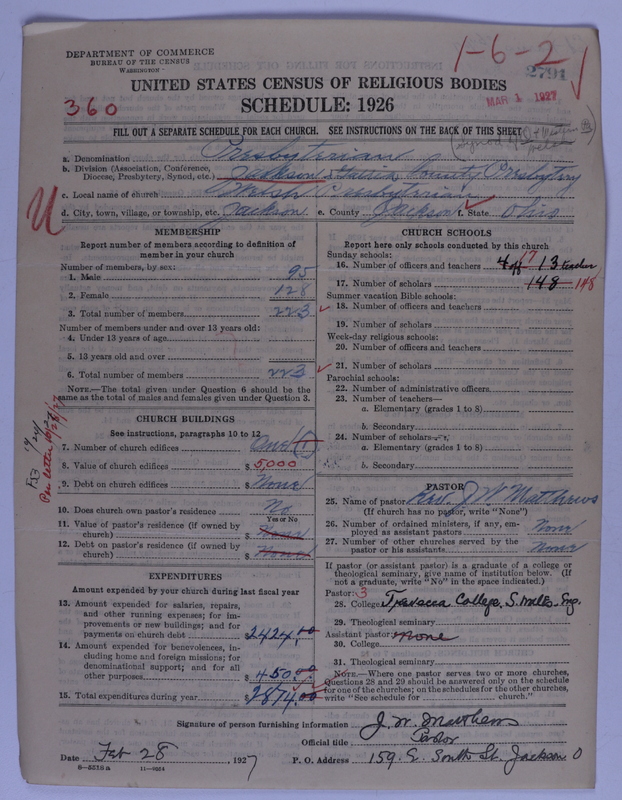 DEPARTMENT OF COMMERCE
BUREAU OF THE CENSUS
WASHINGTON
1-6-2
2791
UNITED STATES CENSUS OF RELIGIOUS BODIES
360
SCHEDULE: 1926
MAR 1 1927
FILL OUT A SEPARATE SCHEDULE FOR EACH CHURCH. SEE INSTRUCTIONS ON THE BACK OF THIS SHEET
a. Denomination Presbyterian
b. Division (Association, Conference, Diocese, Presbytery, Synod, etc.) Jackson Gallia County Presbytery
c. Local name of church Welsh Presbyterian
d. City, town, village, or township, etc. Jackson e. County Jackson f. State Ohio
MEMBERSHIP
Report number of members according to definition of
member in your church
Number of members, by sex:
1. Male 95
2. Female 128
3. Total number of members 223
Number of members under and over 13 years old:
4. Under 13 years of age
5. 13 years old and over
6. Total number of members 223
NOTE.—The total given under Question 6 should be the
same as the total of males and females given under Question 3.
CHURCH BUILDINGS
See instructions, paragraphs 10 to 12
7. Number of church edifices One 1
8. Value of church edifices $ 5,000
9. Debt on church edifices $ None
10. Does church own pastor's residence No
Yes or No
11. Value of pastor's residence (if owned by
church) $ None
12. Debt on pastor's residence (if owned by
church) $ None
Per letter 10/28/27
EXPENDITURES
Amount expended by your church during last fiscal year
13. Amount expended for salaries, repairs,
and other running expenses; for im-
provements or new buildings; and for
payments on church debt $ 2424.00
14. Amount expended for benevolences, in-
cluding home and foreign missions; for
denominational support; and for all
other purposes $ 450.00
15. Total expenditures during year $ 2874.00
CHURCH SCHOOLS
Report here only schools conducted by this church
Sunday schools:
16. Number of officers and teachers 4 off 17 13 teachers
17. Number of scholars 148 148
Summer vacation Bible schools:
18. Number of officers and teachers
19. Number of scholars
Week-day religious schools:
20. Number of officers and teachers
21. Number of scholars
Parochial schools:
22. Number of administrative officers
23. Number of teachers—
a. Elementary (grades 1 to 8)
b. Secondary
24. Number of scholars—
a. Elementary (grades 1 to 8)
b. Secondary
PASTOR
25. Name of pastor Rev. J. W. Matthews
(If church has no pastor, write "None")
26. Number of ordained ministers, if any, em-
ployed as assistant pastors None
27. Number of other churches served by the
pastor or his assistants None
If pastor (or assistant pastor) is a graduate of a college or
theological seminary, give name of institution below. (If
not a graduate, write "No" in the space indicated.)
Pastor: 3
28. College Trevacca College, S. Wales, Eng.
29. Theological seminary
Assistant pastor: none
30. College
31. Theological seminary
NOTE.—Where one pastor serves two or more churches,
Questions 28 and 29 should be answered only on the schedule
for one of the churches; on the schedules for the other churches,
write "See schedule for church."
Signature of person furnishing information J. W. Matthews
Official title Pastor
Date Feb 28, 1927 P. O. Address 159 E. South St. Jackson O
8-5518a 11-9054